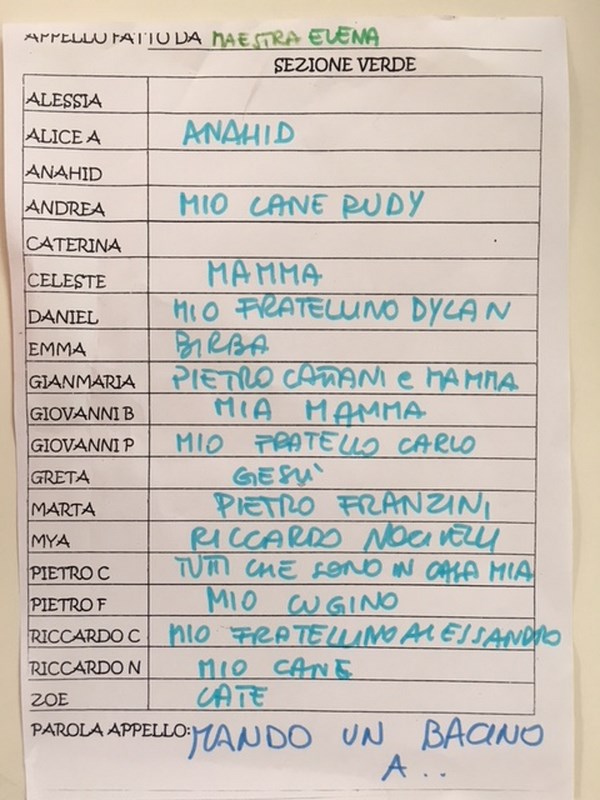 APPELLO FATTO DA MAESTRA ELENA
SEZIONE VERDE
ALESSIA
ALICE A ANAHID
ANAHID
ANDREA MIO CANE RUDY
CATERINA
CELESTE MAMMA
DANIEL MIO FRATELLINO DYLAN
EMMA BIRBA
GIANMARIA PIETRO CATTANI e MAMMA
GIOVANNI B MIA MAMMA
GIOVANNI P MIO FRATELLO CARLO
GRETA GESU'
MARTA PIETRO FRANZINI
MYA RICCARDO NOCIVELLI
PIETRO C TUTTI CHE SONO IN CASA MIA
PIETRO F MIO CUGINO
RICCARDO C MIO FRATELLINO ALESSANDRO
RICCARDO N MIO CANE
ZOE CATE
PAROLA APPELLO: MANDO UN BACINO
A..